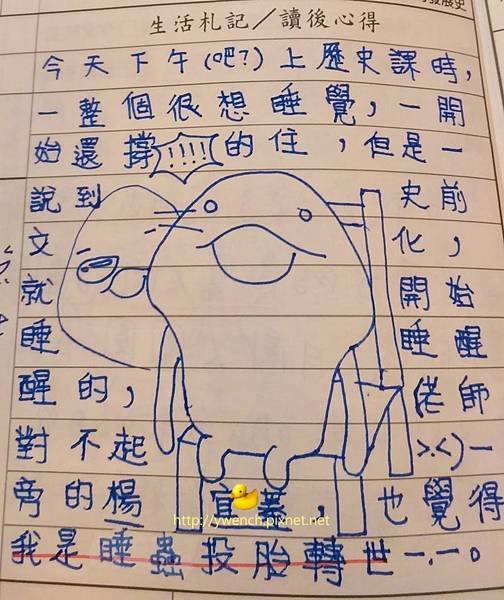 發展史
生活札記/讀後心得
今天下午(吧?)上歷史課時,
一整個很想睡覺,一開
始還撐!!!!的住,但是一
說到史前
文化,
就開始
睡睡醒
醒的,老師
對不起>.<)一
旁的楊宜蓁,也覺得
http://ywench.pixnet.net
我是睡蟲投胎轉世一.一。